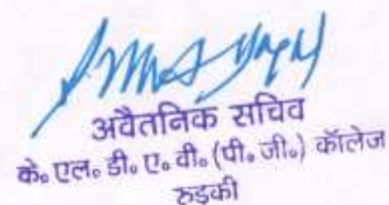 अवैतनिक सचिव
के॰ एल॰ डी॰ ए॰ वी॰ (पी॰ जी॰) कॉलेज
रुड़की